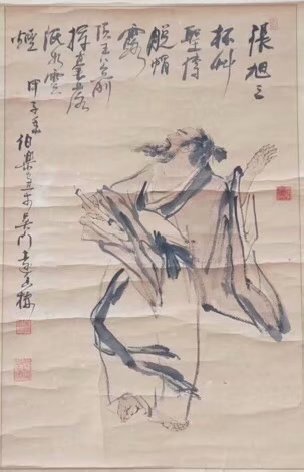 張旭三
杯艸
聖傳
脫帽
露
頂王公前
揮毫落
紙如雲
煙
甲子
伯樂 吳門